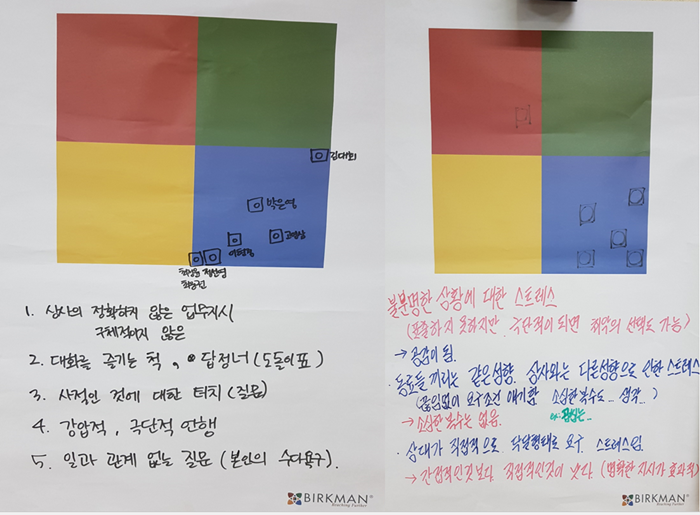 김대희
박은영
고명상
1. 상사의 정확하지 않은 업무지시
구체적이지 않은
2. 대화를 즐기는 척, 답정너 (도돌이표)
3. 사적인 것에 대한 터치 (질문)
4. 강압적, 극단적 언행
5. 일과 관계 없는 질문 (본인의 수다욕구).
BIRKMAN®
Reaching Further
불분명한 상황에 대한 스트레스
(표출하지 못하지만 극단적이 되면 최악의 선택도 가능)
→ 공감이 됨.
· 동료들끼리는 같은성향. 상사와는 다른성향으로 인한 스트레스
(끊임없이 요구조건 얘기함 소심한복수도.. 생각...)
→ 소심한 복수는 없음.
· 상대가 직접적으로 닥달형태로 요구. 스트레스임.
→ 간접적인것보다. 직접적인것이 낫다. (명확한 지시가 효과적)
BIRKMAN®
Reaching Further